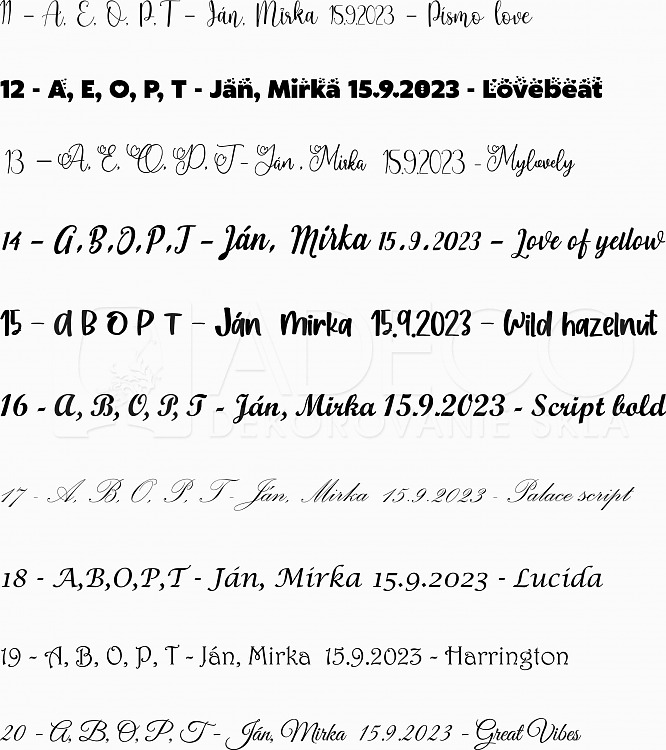 11 - A, E, O, P,T - Ján, Mirka 15.9.2023 - Písmo love
12 - A, E, O, P, T - Ján, Mirka 15.9.2023 - Lovebeat
13 - A, E, O, P, T - Ján , Mirka 15.9.2023 - Mylovely
14 - A,B,O,P,T - Ján, Mirka 15.9.2023 - Love of yellow
15 - A B O P T - Ján Mirka 15.9.2023 - Wild hazelnut
JADECO
16 - A, B, O, P, T - Ján, Mirka 15.9.2023 - Script bold
DEKOROVANIE SKLA
17 - A, B, O, P, T - Ján, Mirka 15.9.2023 - Palace script
18 - A,B,O,P,T - Ján, Mirka 15.9.2023 - Lucida
19 - A, B, O, P, T - Ján, Mirka 15.9.2023 - Harrington
20 - A, B, O, P, T - Ján, Mirka 15.9.2023 - Great Vibes